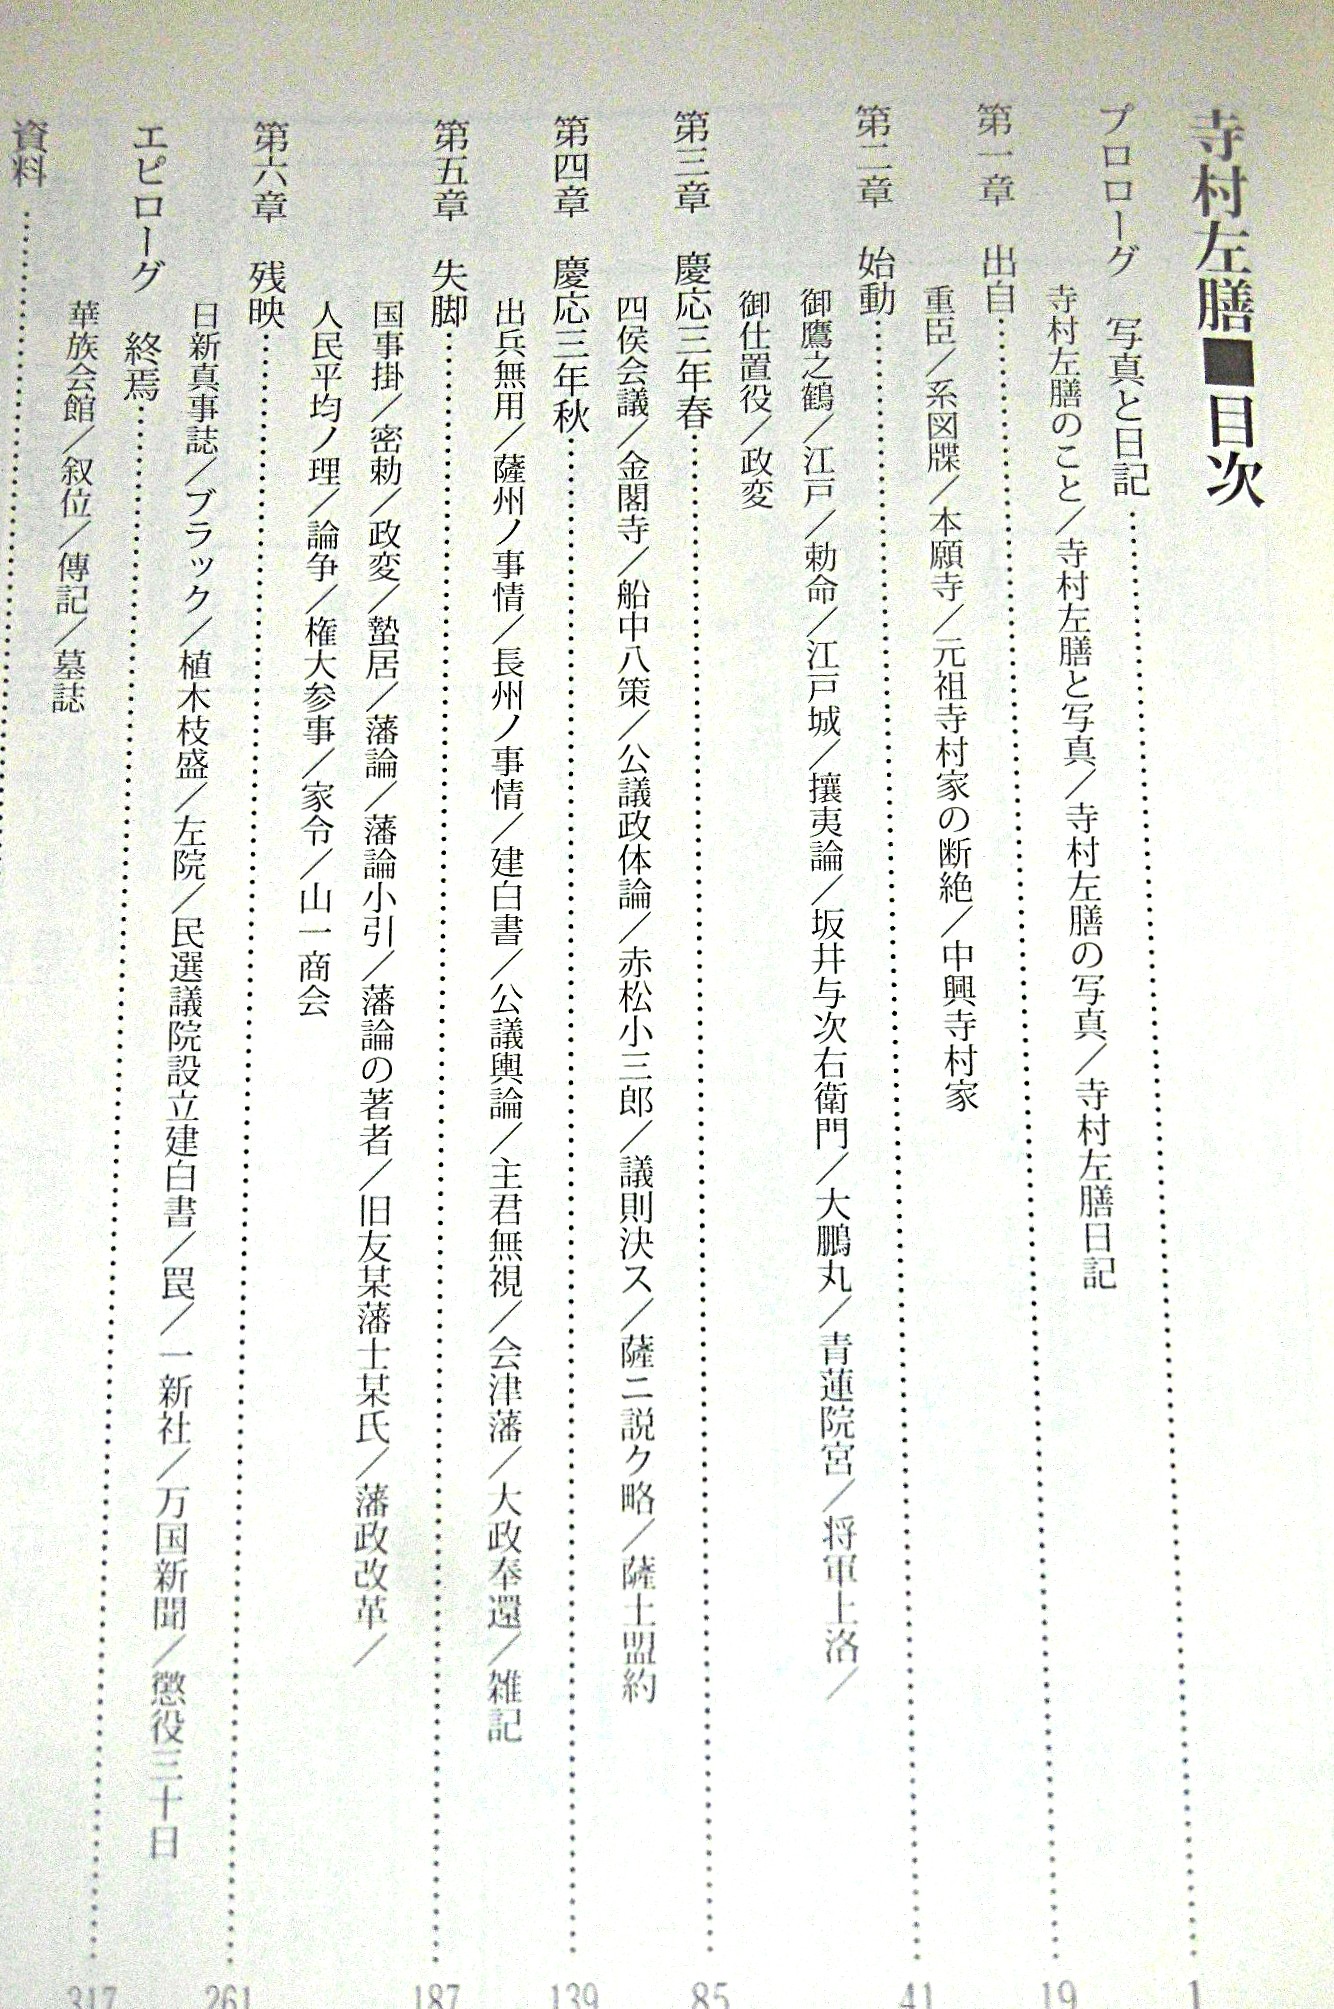 寺村左膳■目次
プロローグ 写真と日記……1
寺村左膳のこと／寺村左膳と写真／寺村左膳の写真／寺村左膳日記
第一章 出自……19
重臣／系図牒／本願寺／元祖寺村家の断絶／中興寺村家
第二章 始動……41
御鷹之鶴／江戸／勅命／江戸城／攘夷論／坂井与次右衛門／大鵬丸／青蓮院宮／将軍上洛／
御仕置役／政変
第三章 慶応三年春……85
四侯会議／金閣寺／船中八策／公議政体論／赤松小三郎／議則決ス／薩ニ説ク略／薩土盟約
第四章 慶応三年秋……139
出兵無用／薩州ノ事情／長州ノ事情／建白書／公議輿論／主君無視／会津藩／大政奉還／雑記
第五章 失脚……187
国事掛／密勅／政変／蟄居／藩論／藩論小引／藩論の著者／旧友某藩士某氏／藩政改革／
人民平均ノ理／論争／権大参事／家令／山一商会
第六章 残映……261
日新真事誌／ブラック／植木枝盛／左院／民選議院設立建白書／罠／一新社／万国新聞／懲役三十日
エピローグ 終焉……317
華族会館／叙位／傳記／墓誌
資料……